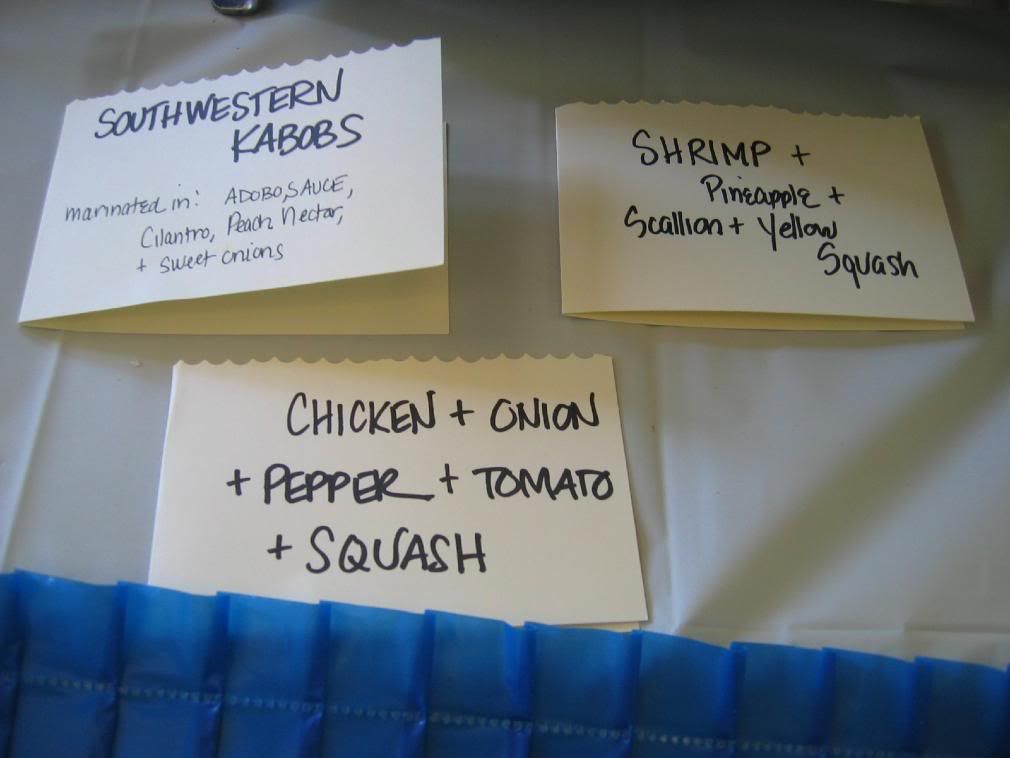 SOUTHWESTERN
KABOBS
marinated in: ADOBO, SAUCE,
Cilantro, Peach Nectar,
+ sweet onions
SHRIMP +
Pineapple +
Scallion + Yellow
Squash
CHICKEN + ONION
+ PEPPER + TOMATO
+ SQUASH